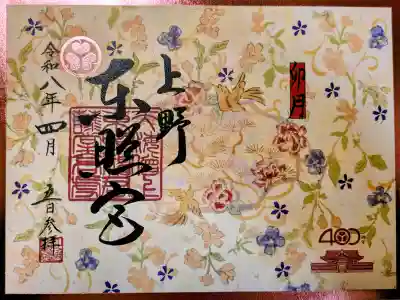 卯月
上野
東照宮
令和八年四月
五日参拝
400年